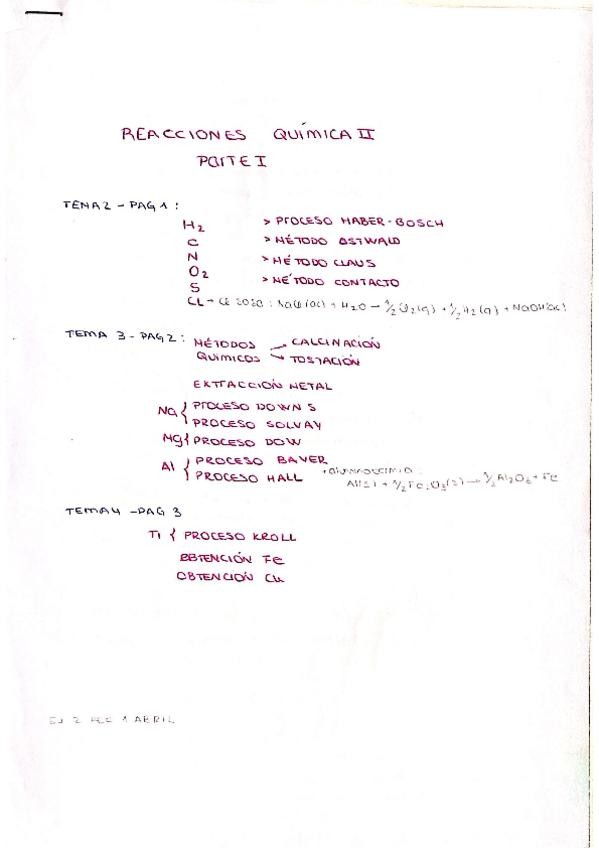 REACCIONES QUÍMICA II
PARTE I
TEMA 2 - PAG 1 :
H2 > PROCESO HABER-BOSCH
C > MÉTODO OSTWALD
N > MÉTODO CLAUS
O2
S > MÉTODO CONTACTO
CL → : NaCl(ac) + H2O → 1/2 Cl2(g) + 1/2 H2(g) + NaOH(ac)
TEMA 3 - PAG 2 : MÉTODOS QUÍMICOS → CALCINACIÓN
→ TOSTACIÓN
EXTRACCIÓN METAL
Na { PROCESO DOWNS
PROCESO SOLVAY
Mg { PROCESO DOW
Al { PROCESO BAYER
PROCESO HALL + aluminotermia :
Al(s) + 1/2 Fe2O3(s) → 1/2 Al2O3 + Fe
TEMA 4 - PAG 3
Ti { PROCESO KROLL
OBTENCIÓN Fe
OBTENCIÓN Cu
EJ 2 1 ABRIL